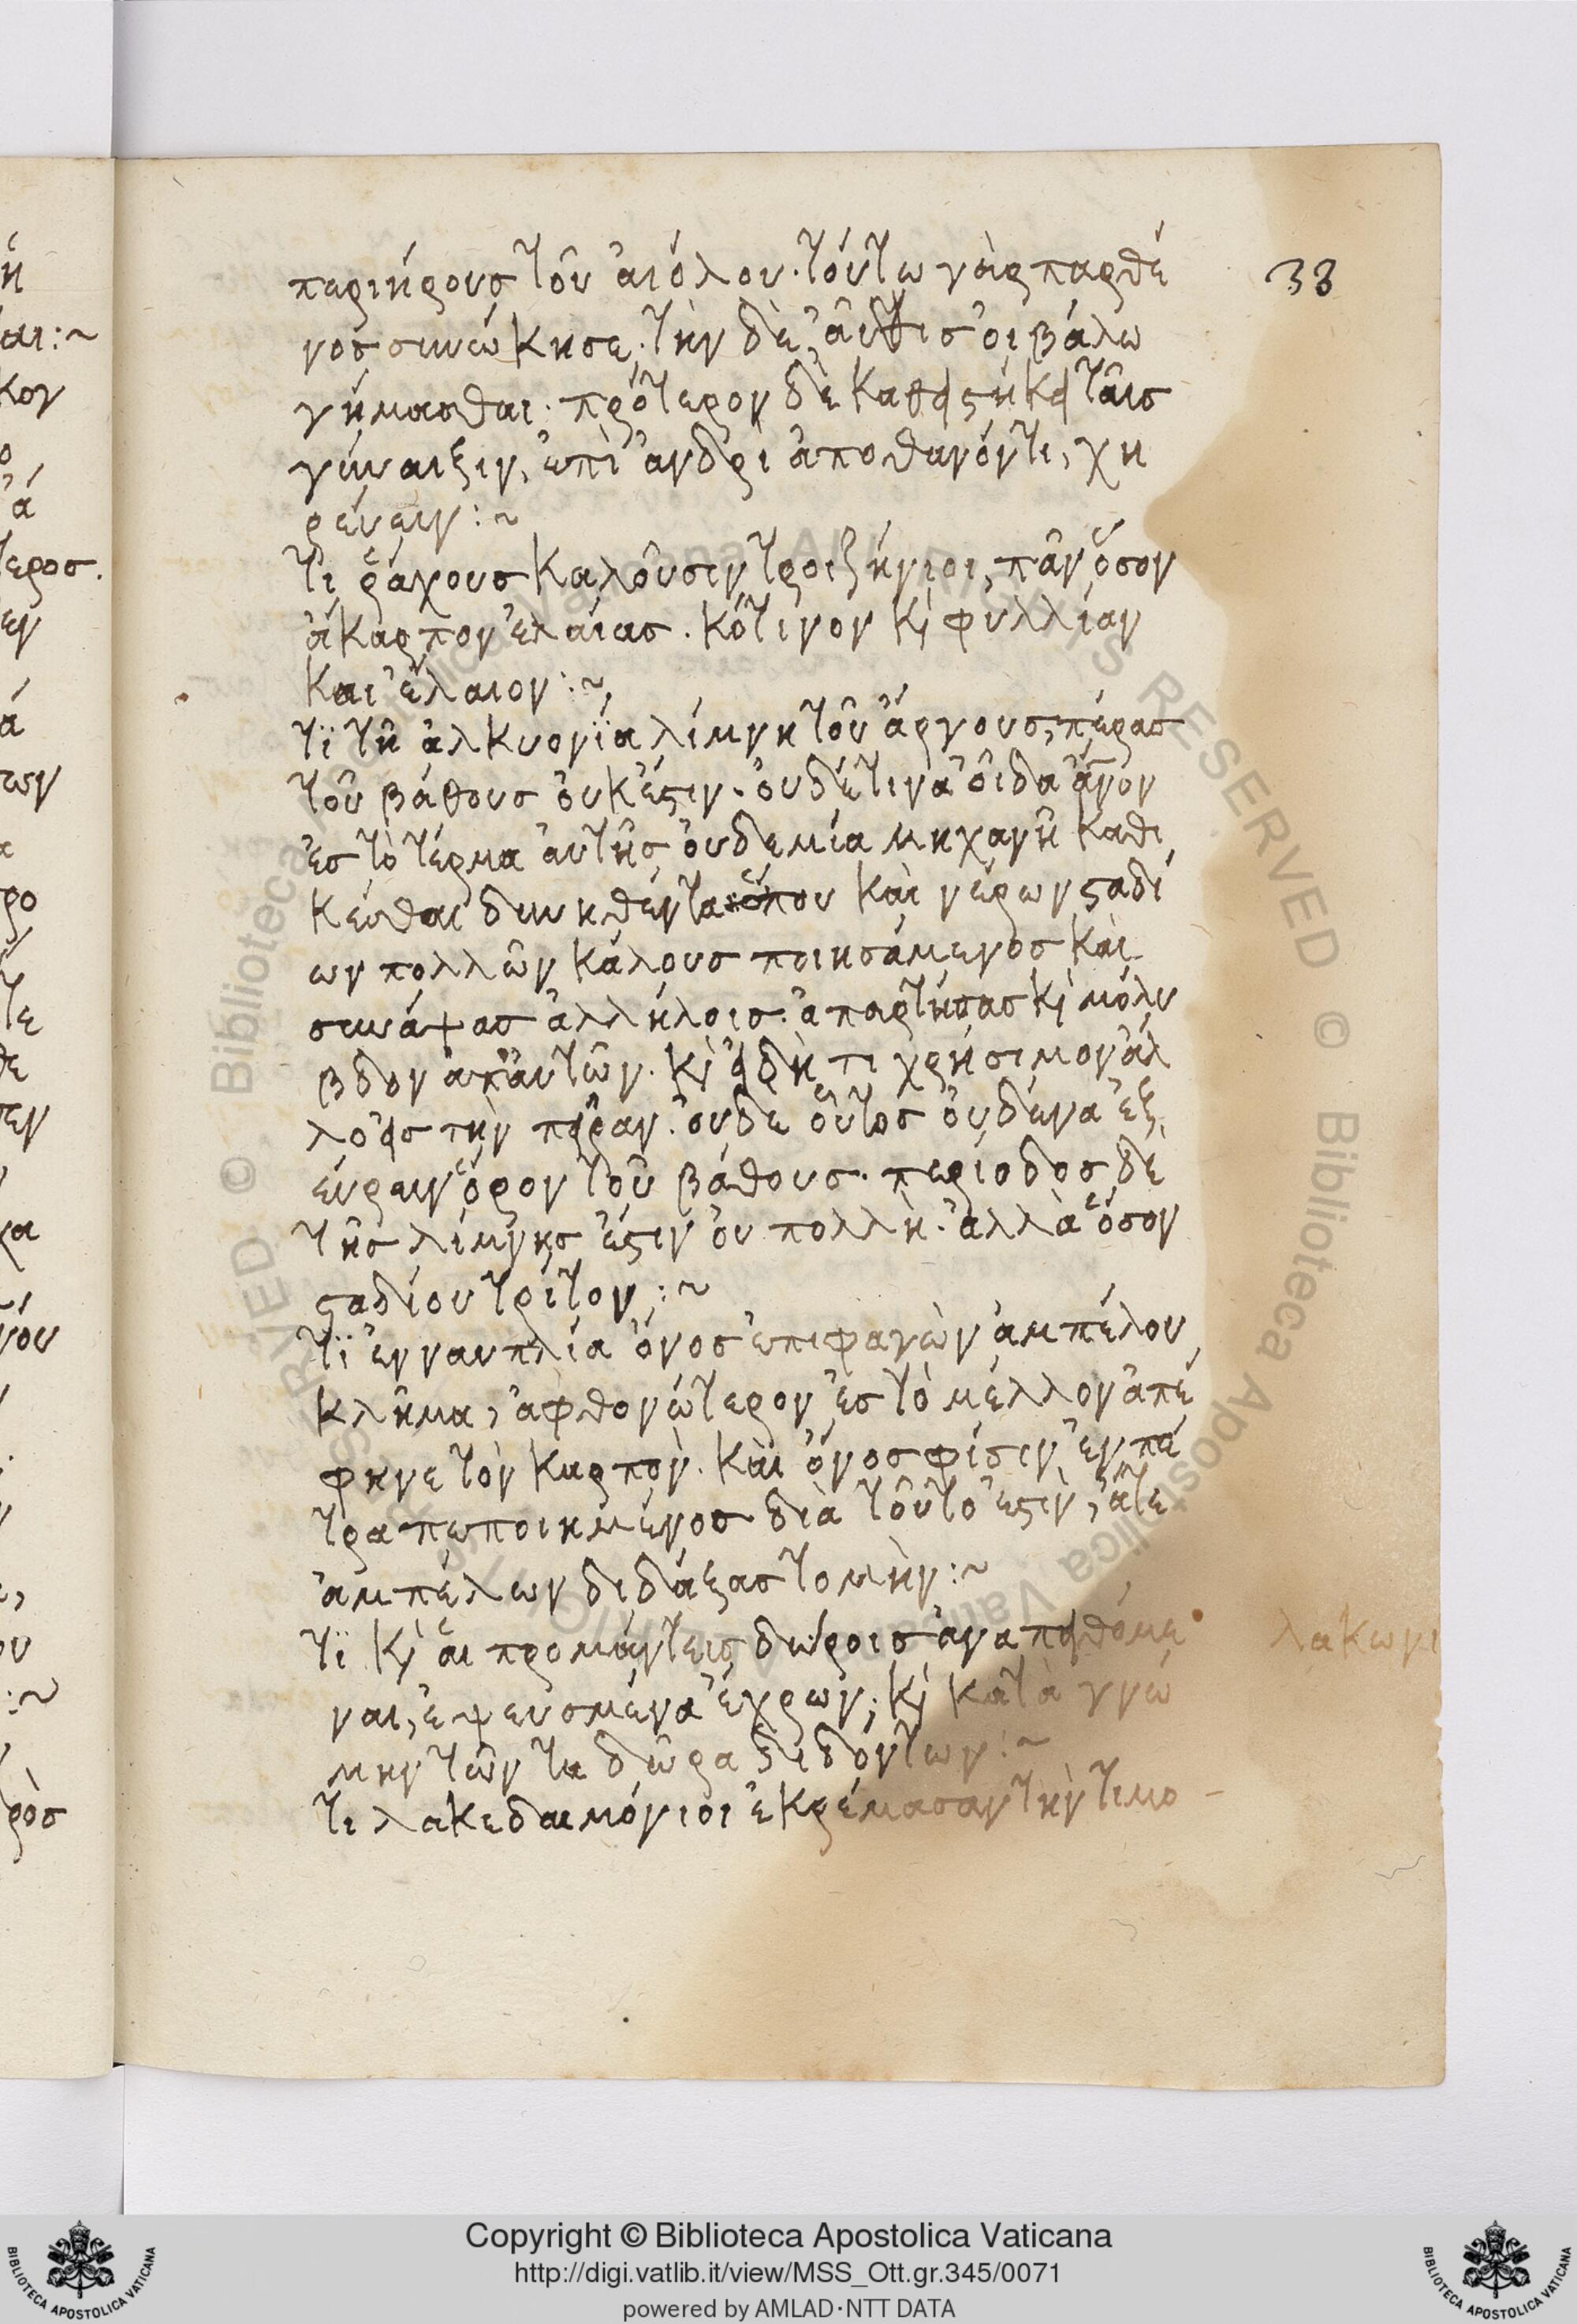 περιήρους τοῦ αἰόλου. τούτω γὰρ παρθέ
νος συνώκησε. τὴν δὲ, αὖθις οἰβάλω
γήμασθαι. πρότερον δὲ καθειστήκει ταῖς
γύναιξιν, ἐπὶ ἀνδρὶ ἀποθανόντι, χη
ρεύειν :~
τί ῥάχους καλοῦσιν τροιζήνιοι, πᾶν ὅσον
ἄκαρπον ἐλαίας. κότινον καὶ φυλλίαν
και ἔλαιον :~
τῒ τῆ ἀλκυονΐα λίμνη τοῦ ἄργους, πέρας
τοῦ βάθους οὐκ ἔστιν. οὐδέ τινα οἶδα ἄνον
ἐς τὸ τέρμα αὐτῆς οὐδεμία μηχανῆ καθι
κέσθαι δυνηθέντα ὅπου καὶ νέρων σταδί
ων πολλῶν κάλους ποιησάμενος καὶ
συνάψας ἀλλήλοις. ἀπαρτήσας καὶ μόλυ
βδον ἀπ' αὐτῶν. καὶ εἰ δή τι χρήσιμον ἄλ
λο εἰς τὴν πεῖραν. οὐδε οὗτος οὐδένα ἐξ
εύρειν ὅρον τοῦ βάθους. περίοδος δὲ
τῆς λίμνης ἐστιν οὐ πολλὴ. ἀλλὰ ὅσον
σταδίου τρίτον :~
τῒ ἐν ναυπλία ὄνος ἐπιφαγὼν ἀμπέλου
κλῆμα, ἀφθονώτερον ἐς τὸ μέλλον ἀπέ
φηνε τὸν καρπὸν. καὶ ὄνος φίσιν ἐν πέ
τρα πεποιημένος διὰ τοῦτο ἐστιν, ἅτε
ἀμπέλων διδάξας τομὴν :~
τῒ καὶ αἱ προμάντεις δώροις ἀναπειθόμε
ναι, ἐψευσμένα ἔχρων, καὶ κατὰ γνώ
μην τῶν τα δῶρα διδόντων :~
τι λακεδαιμόνιοι ἐκρέμασαν τὴν τιμο-
38
λακωνι
© Biblioteca Apostolica Vaticana ALL RIGHTS RESERVED
Copyright © Biblioteca Apostolica Vaticana
http://digi.vatlib.it/view/MSS_Ott.gr.345/0071
powered by AMLAD·NTT DATA
BIBLIOTECA APOSTOLICA VATICANA
BIBLIOTECA APOSTOLICA VATICANA